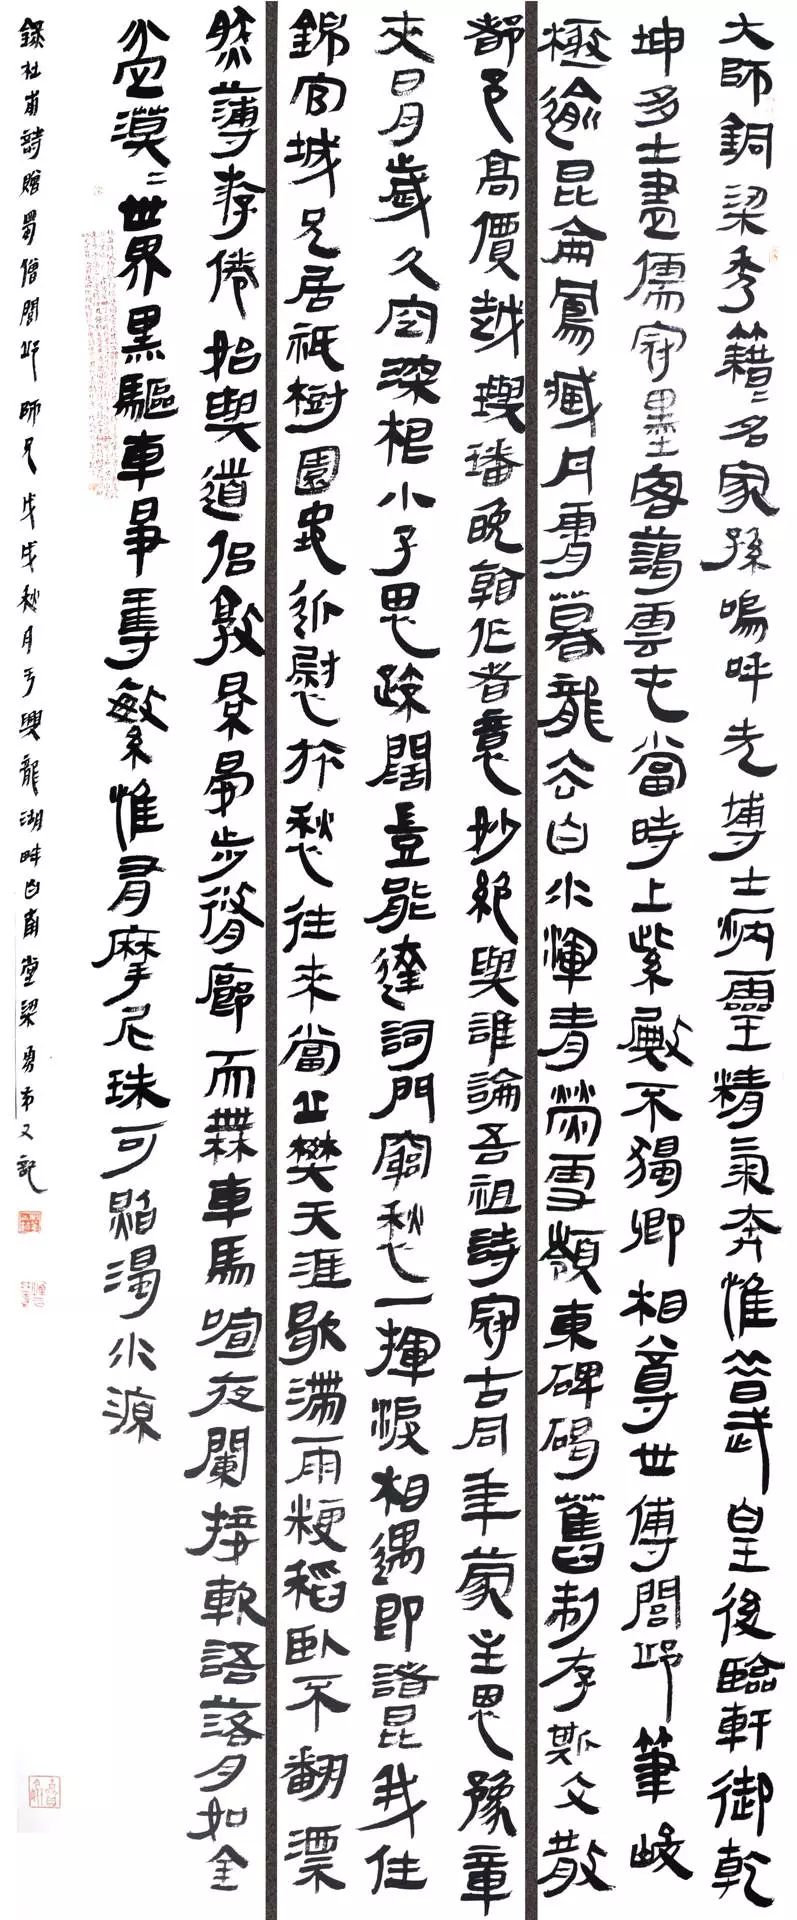 大師銅梁秀籍〻名家孫嗚呼先博士炳靈精氣奔惟昔武皇後臨軒御乾
坤多士盡儒冠墨客藹雲屯當時上紫殿不獨卿相尊世傳閭邱筆峻
極逾昆侖鳳臧丹霄暮龍去白水渾青熒雪嶺東碑碣舊制存斯文散
都邑高價越璵璠晚翰作者意妙絕與誰論吾祖詩冠古同年蒙主恩豫章
夾日月歲久空深根小子思疎闊豈能達詞門窮愁一揮淚相遇即諸昆我住
錦官城兄居祇樹園地近慰於愁往來當丘樊天涯歇滯雨粳稻臥不翻漂
然薄遊倦始與道侶敦景晏步脩廊而無車馬喧夜闌接軟語落月如金
盆漠〻世界黑驅車爭奪繁惟有摩尼珠可照濁水源
錄杜甫詩贈蜀僧閭邱師兄戊戌秋月于興龍湖畔白首堂梁勇布又記